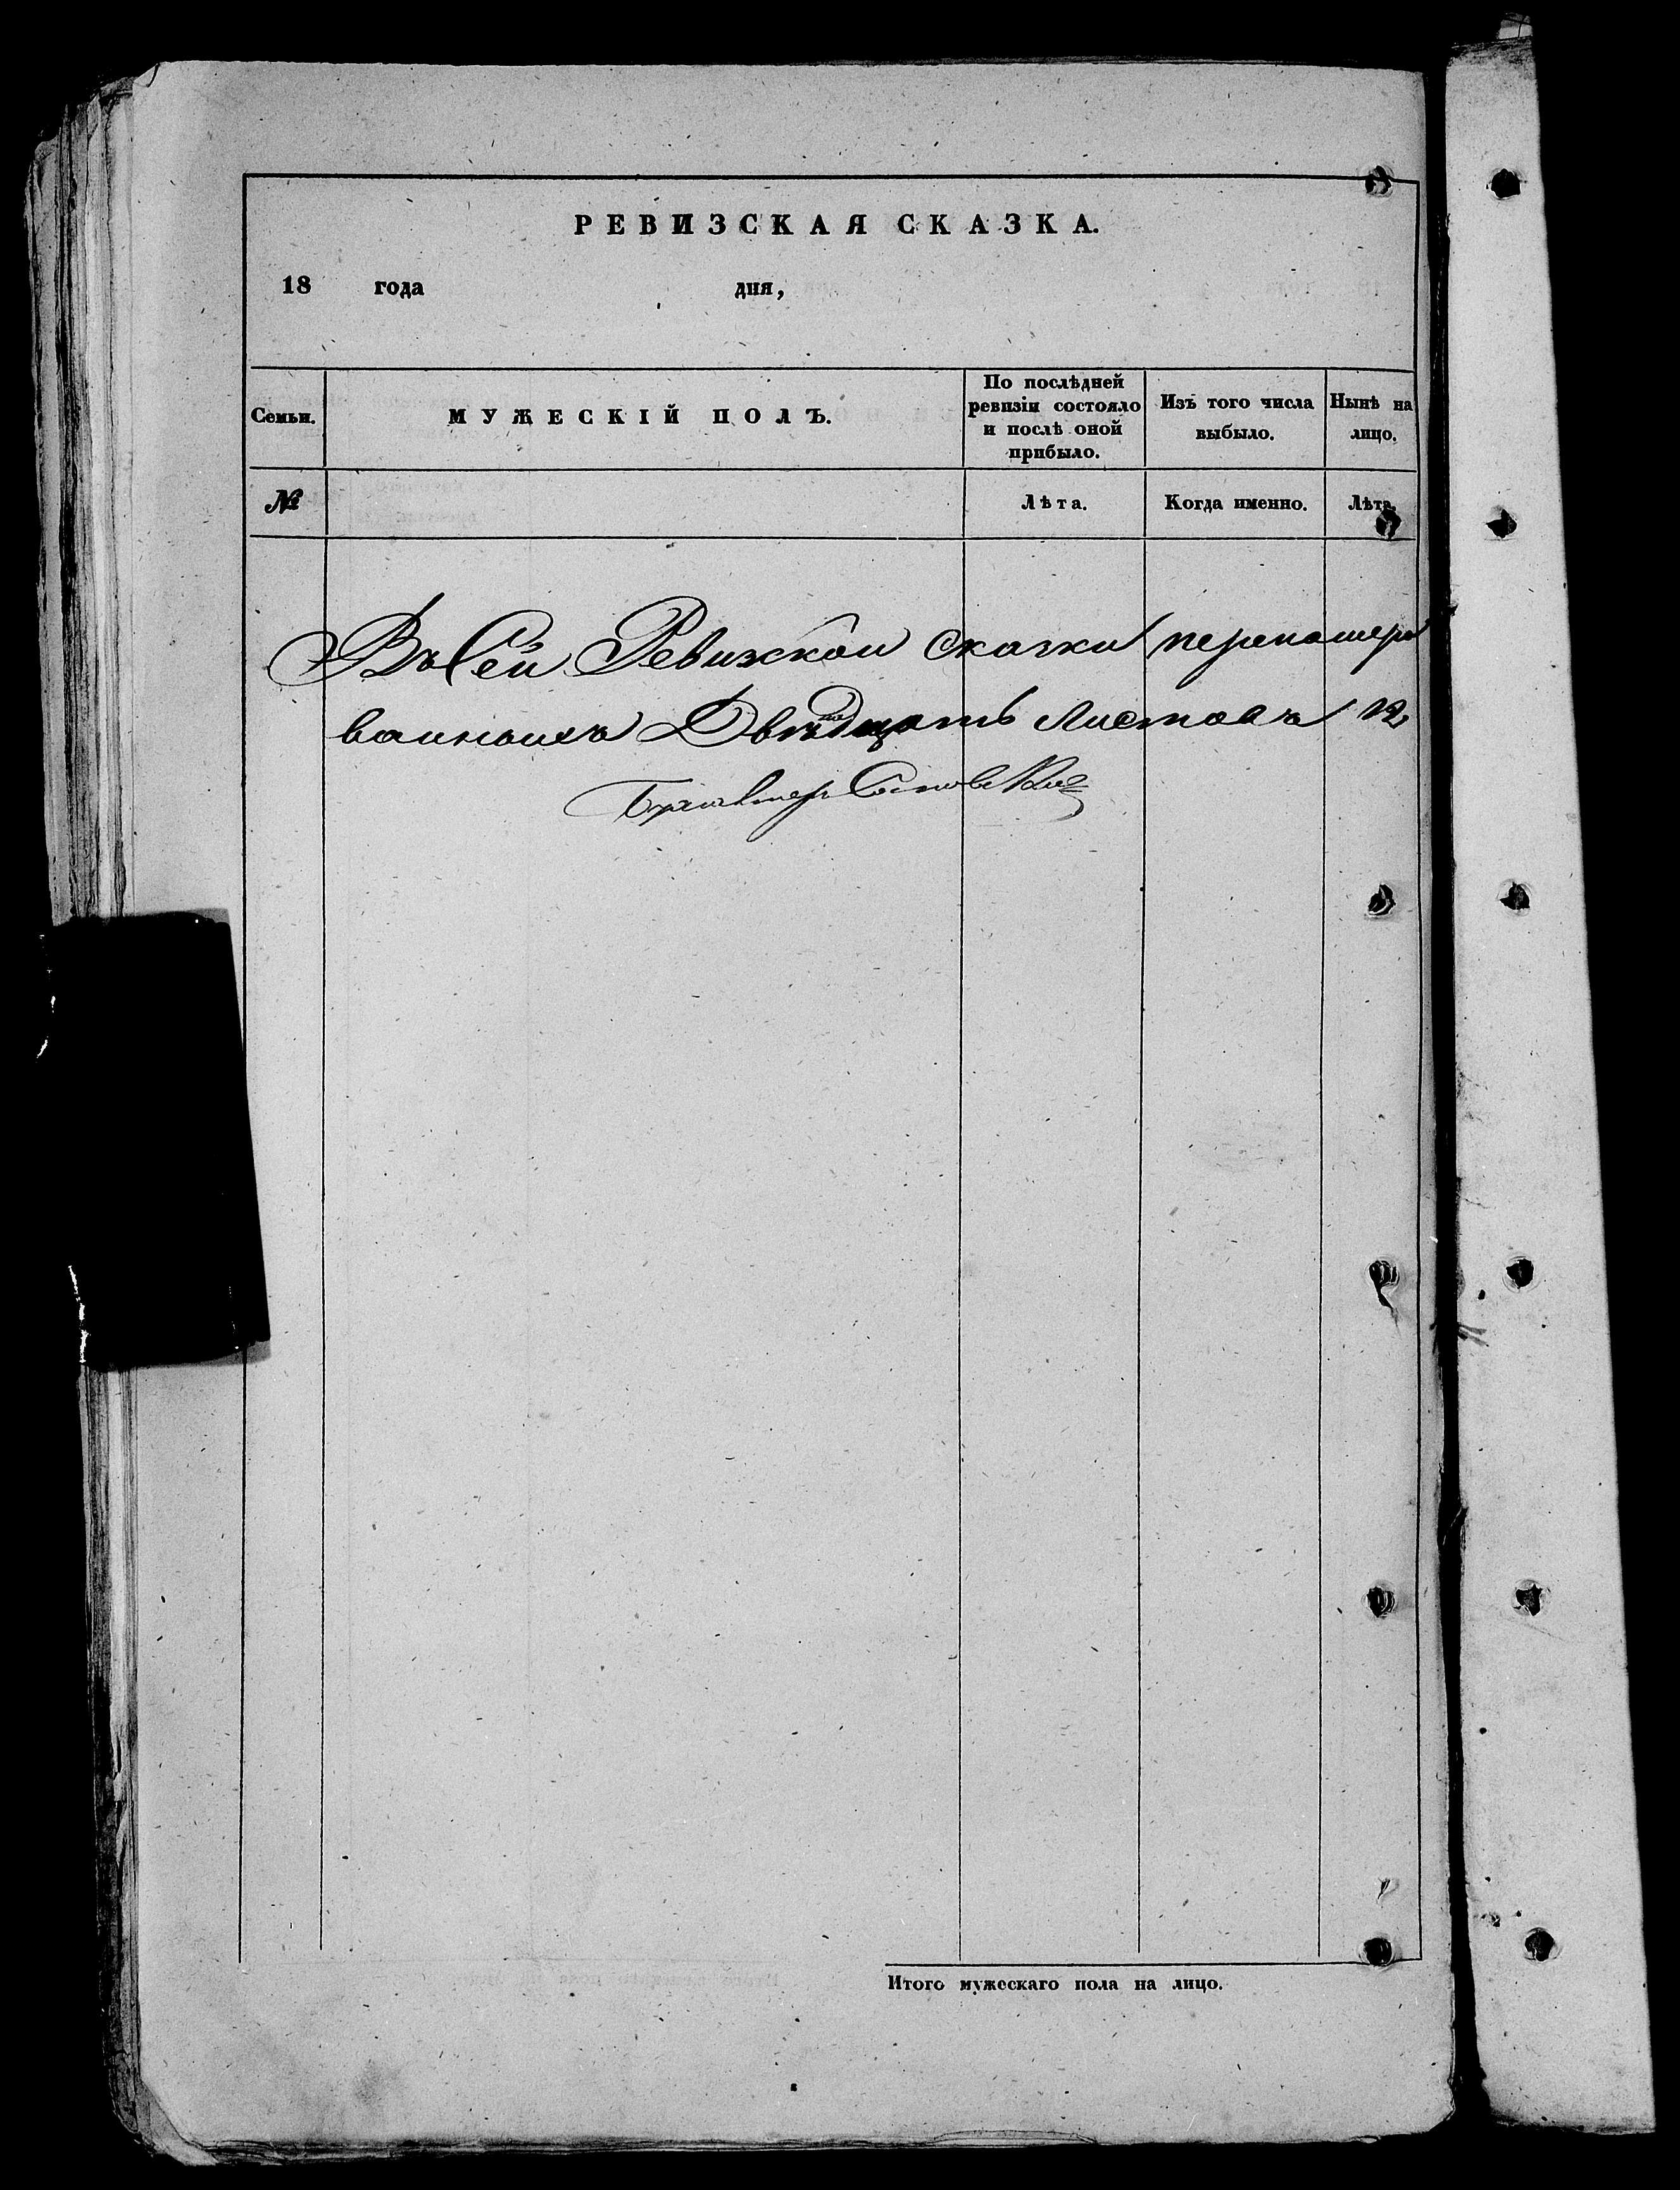 РЕВИЗСКАЯ СКАЗКА.
18 года дня,
Семьи.
МУЖЕСКІЙ ПОЛЪ.
По послѣдней
ревизіи состояло
и послѣ оной
прибыло.
Изъ того числа
выбыло.
Нынѣ на
лицо.
№
Лѣта.
Когда именно.
Лѣта.
Въ Сей Ревизкой сказки перенамеро
ванныхъ Двѣнадцать листовъ 12
Бухгалтеръ
Итого мужескаго пола на лицо.